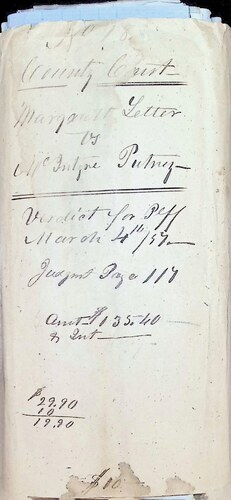 No 18
County Court
Margaret Letter
vs
Mc Intyre Putney
Verdict for Plff
March 4th/57
Judgmt Page 117
Amt $135.40
& Int
$
29.90
10
19.90
$10